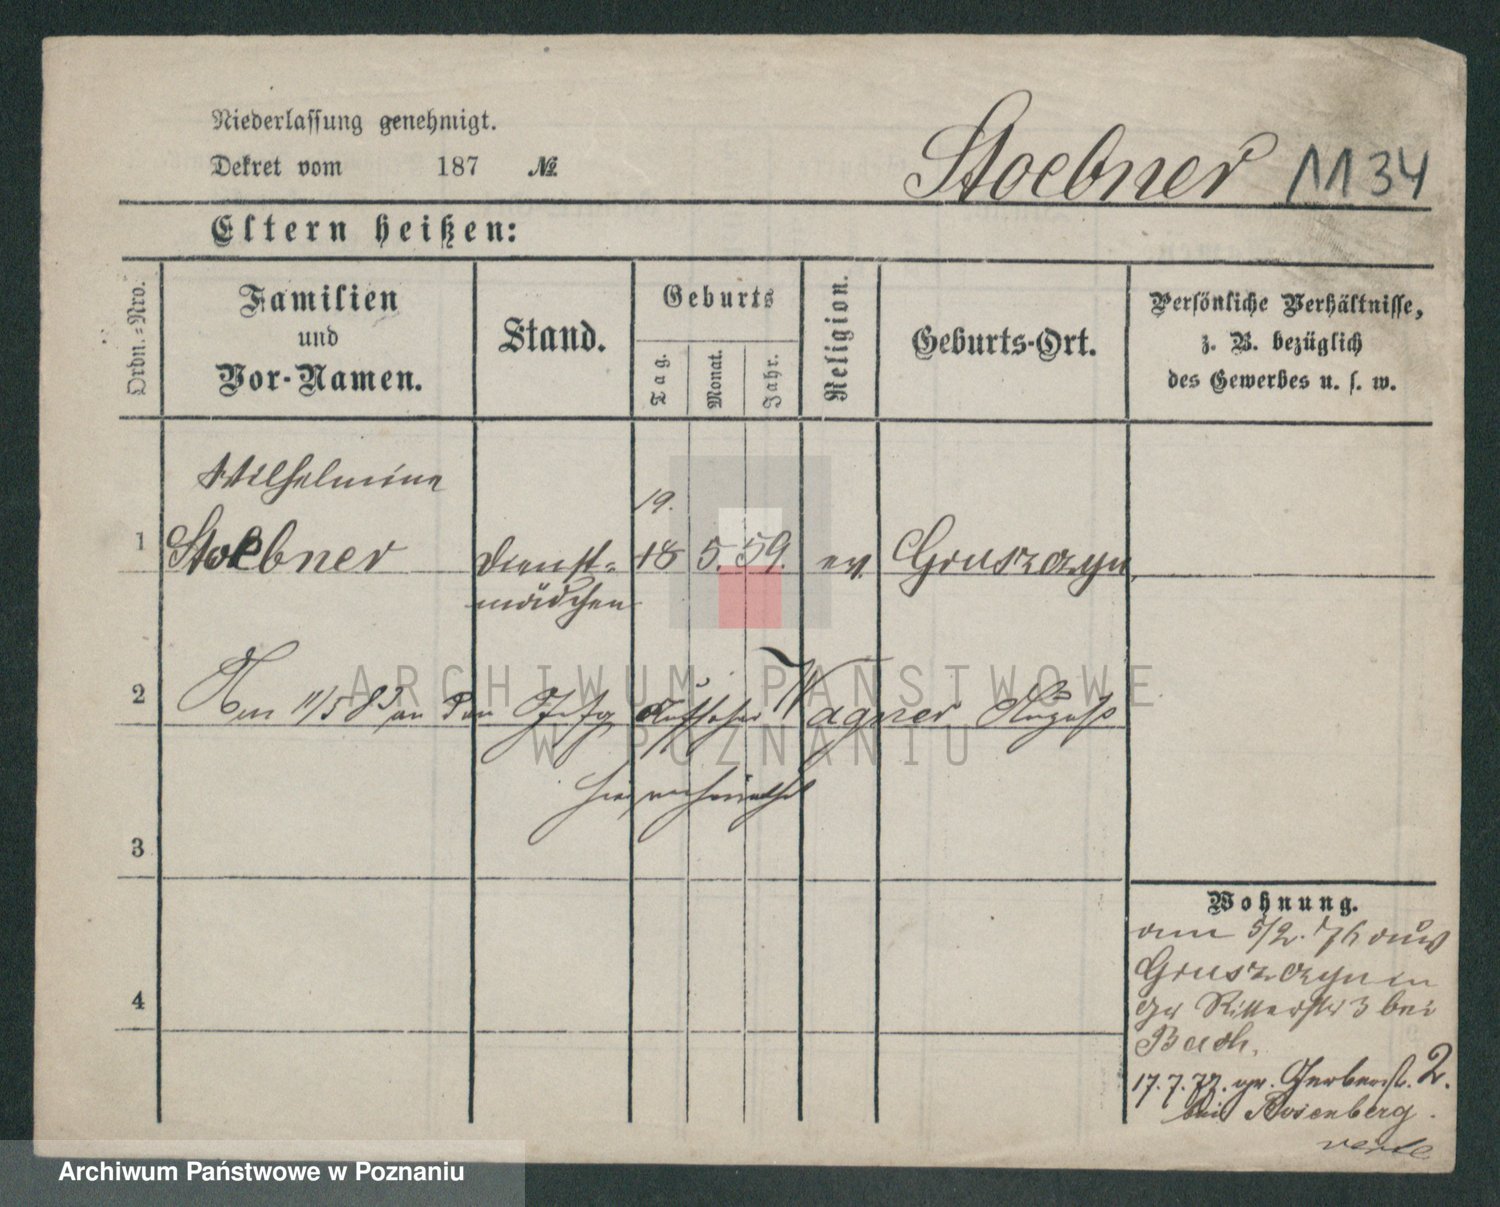 Niederlassung genehmigt.
Dekret vom 187 №
Stoebner 1134
Eltern heißen:
Ordn.-Nro.
Familien
und
Vor-Namen.
Stand.
Geburts
Tag.
Monat.
Jahr.
Religion.
Geburts-Ort.
Persönliche Verhältnisse,
z. B. bezüglich
des Gewerbes u. s. w.
Wilhelmine
19.
1 Stoebner Dienst= 18 5. 59. ev. Gruszczyn
mädchen
2 Am 11/5 82 an den Wagner August
hier verheirathet
3
4
Wohnung.
am 5/2. 76 aus
Gruszczyn
gr Ritterstr 3 bei
Bach.
17.7.77. gr. Gerberstr. 2.
bei Rosenberg.
ARCHIWUM PAŃSTWOWE
W POZNANIU
Archiwum Państwowe w Poznaniu